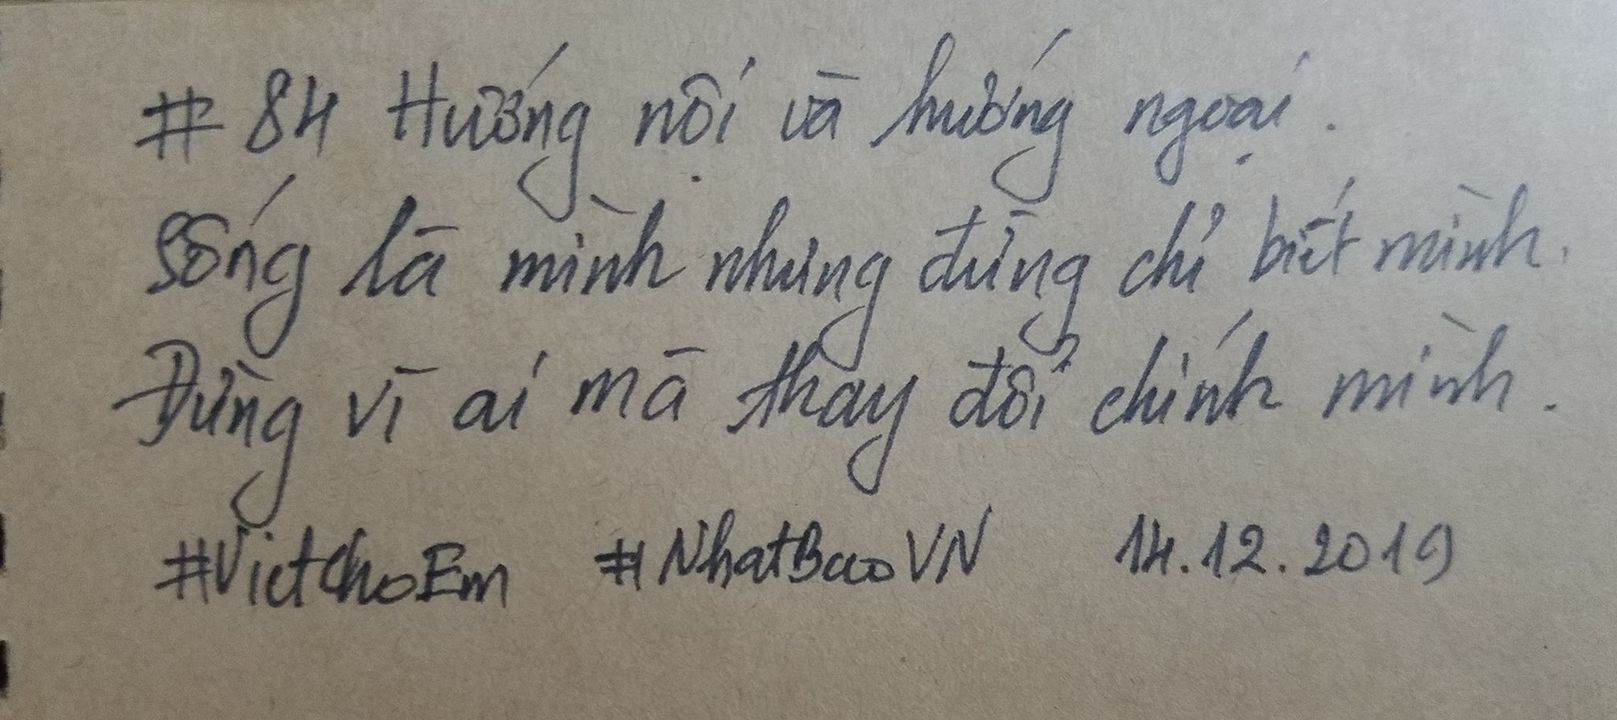 #84 Hướng nội và hướng ngoại.
Sống là mình nhưng đừng chỉ biết mình.
Đừng vì ai mà thay đổi chính mình.
#VietchoEm #NhatBaoVN 14.12.2019